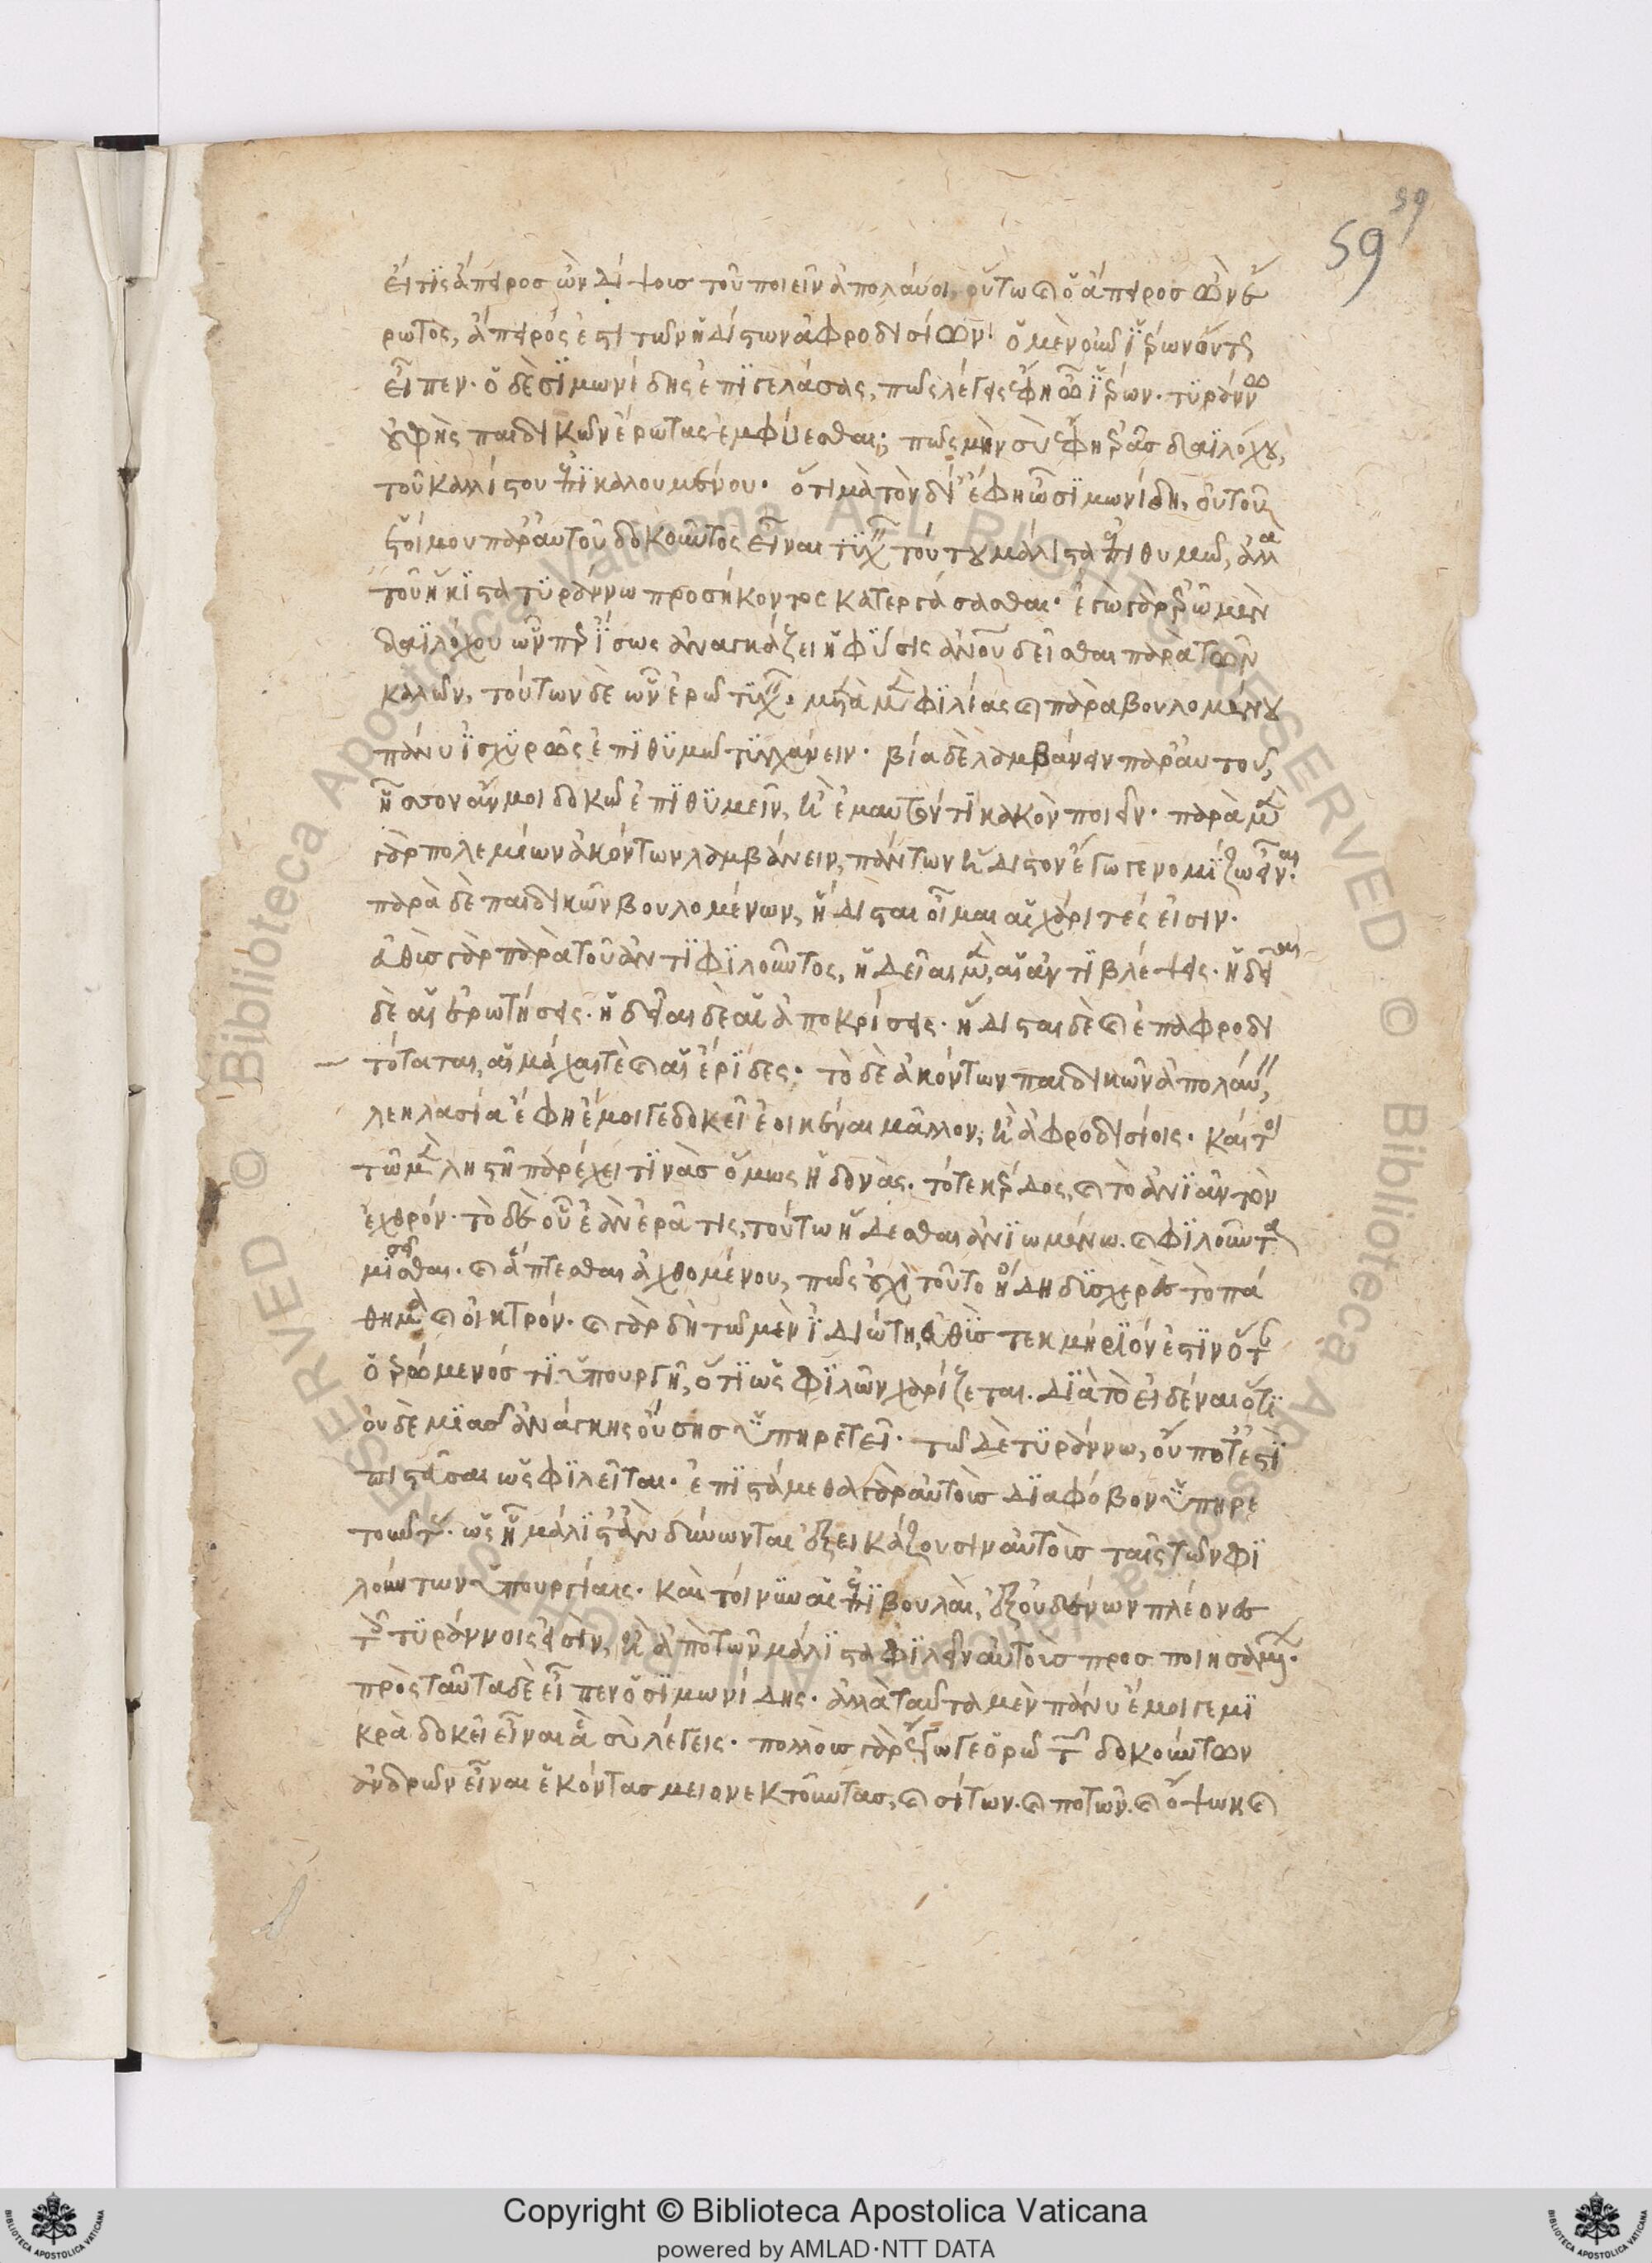 59
59
εἴ τις ἄπειρος ὢν δίψους τοῦ ποιεῖν ἀπολαύοι, οὕτω καὶ ὁ ἄπειρος ὢν ἔ
ρωτος, ἄπειρός ἐστι τῶν ἡδίστων ἀφροδισίων· ὁ μὲν οὖν ἱέρων οὕτως
εἶπεν. ὁ δὲ σιμωνίδης ἐπιγελάσας, πῶς λέγεις ἔφη ὦ ἱέρων. τυράννω
οὐ φὴς παιδικῶν ἔρωτας ἐμφύεσθαι; πῶς μὴν σὺ ἔφη ἐρᾶς δαϊλόχου,
τοῦ καλλίστου ἐπικαλουμένου. ὅτι μὰ τὸν δί' ἔφη ὦ σιμωνίδη, οὐ τοῦ
ἑτοίμου παρ' αὐτοῦ δοκοῦντος εἶναι τυχεῖν τούτου μάλιστα ἐπιθυμῶ, ἀλλὰ
τοῦ ἥκιστα τυράννω προσήκοντος κατεργάσασθαι. ἐγὼ γὰρ ἐρῶ μὲν
δαϊλόχου ὧνπερ ἴσως ἀναγκάζει ἡ φύσις ἀνθρώπου δεῖσθαι παρὰ τῶν
καλῶν, τούτων δὲ ὧν ἐρῶ τυχεῖν, μετὰ μὲν φιλίας καὶ παρὰ βουλομένου
πάνυ ἰσχυρῶς ἐπιθυμῶ τυγχάνειν. βία δὲ λαμβάνειν παρ' αὐτοῦ,
ἧσσον ἄν μοι δοκῶ ἐπιθυμεῖν, ἢ ἐμαυτόν τι κακὸν ποιεῖν. παρὰ μὲν
γὰρ πολεμίων ἀκόντων λαμβάνειν, πάντων ἥδιστον ἔγωγε νομίζω εἶναι.
παρὰ δὲ παιδικῶν βουλομένων, ἥδισται οἶμαι αἱ χάριτές εἰσιν.
εὐθὺς γὰρ παρὰ τοῦ ἀντιφιλοῦντος, ἡδεῖαι μὲν, αἱ ἀντιβλέψεις. ἡδεῖαι
δὲ αἱ ἐρωτήσεις. ἡδεῖαι δὲ αἱ ἀποκρίσεις. ἥδισται δὲ καὶ ἐπαφροδι
τόταται, αἱ μάχαι τὲ καὶ αἱ ἔριδες. τὸ δὲ ἀκόντων παιδικῶν ἀπολαύειν,
λεηλασία ἔφη ἔμοιγε δοκεῖ ἐοικέναι μᾶλλον, ἢ ἀφροδισίοις. καίτοι
τῶ μὲν ληστῆ παρέχει τινὰς ὅμως ἡδονὰς. τό τε κέρδος, καὶ τὸ ἀνιᾶν τὸν
ἐχθρόν. τὸ δὲ οὗ ἐὰν ἐρᾶ τις, τούτω ἥδεσθαι ἀνιωμένω. καὶ φιλοῦντα
μισεῖσθαι. καὶ ἅπτεσθαι ἀχθομένου, πῶς οὐχὶ τοῦτο ἤδη δυσχερὲς τὸ πά
θημα καὶ οἰκτρόν. καὶ γὰρ δὴ τῶ μὲν ἰδιώτη, εὐθὺς τεκμήριόν ἐστιν ὅταν
ὁ ἐρώμενός τι ὑπουργῆ, ὅτι ὡς φιλῶν χαρίζεται. διὰ τὸ εἰδέναι ὅτι
οὐδεμιᾶς ἀνάγκης οὔσης ὑπηρετεῖ. τῶ δὲ τυράννω, οὔποτ' ἔστι
πιστεῦσαι ὡς φιλεῖται. ἐπιστάμεθα γὰρ αὐτοὺς διὰ φόβον ὑπηρε
τοῦντας. ὡς ᾗ μάλιστ' ἂν δύνωνται ἐξεικάζουσιν αὑτοὺς ταῖς τῶν φι
λούντων ὑπουργίαις. καὶ τοίνυν αἱ ἐπιβουλαὶ, ἐξ οὐδένων πλέονες
τοῖς τυράννοις εἰσὶν, ἢ ἀπὸ τῶν μάλιστα φιλεῖν αὐτοὺς προσποιησαμένων.
πρὸς ταῦτα δὲ εἶπεν ὁ σιμωνίδης. ἀλλὰ ταῦτα μὲν πάνυ ἔμοιγε μι
κρὰ δοκεῖ εἶναι ἃ σὺ λέγεις. πολλοὺς γὰρ ἔγωγε ὁρῶ τῶν δοκούντων
ἀνδρῶν εἶναι ἑκόντας μειονεκτοῦντας, καὶ σίτων. καὶ ποτῶν. καὶ ὄψων καὶ
Copyright © Biblioteca Apostolica Vaticana
powered by AMLAD·NTT DATA